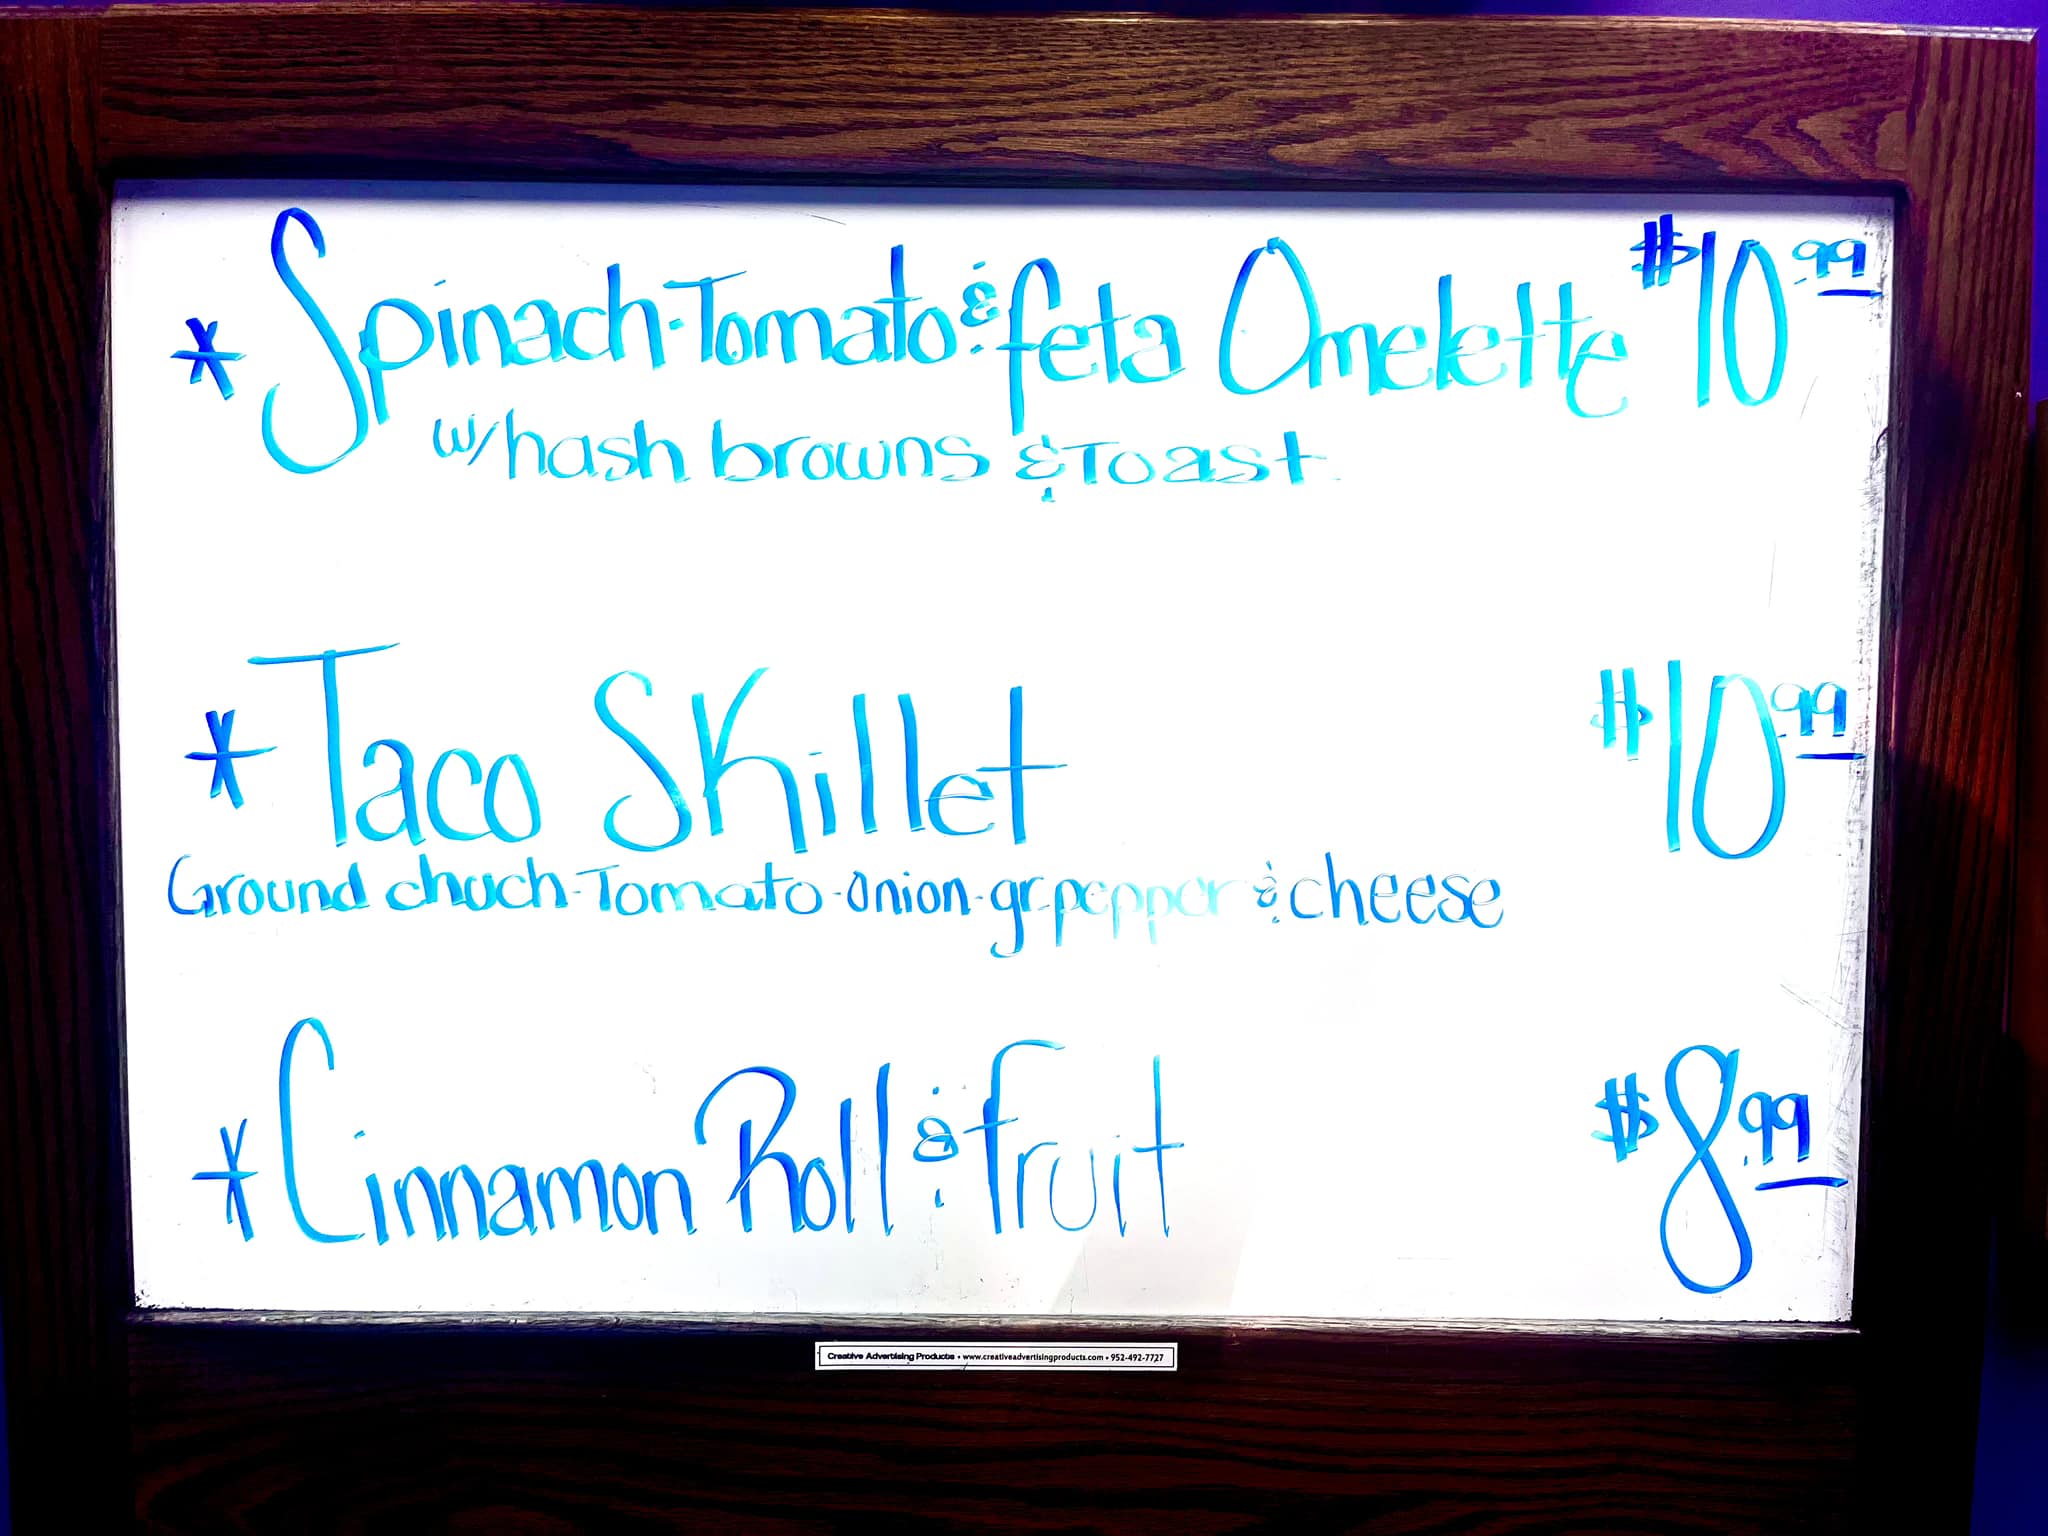 * Spinach-Tomato & feta Omelette $10.99
w/hash browns & Toast
* Taco Skillet $10.99
Ground chuch-Tomato-onion-gr.pepper & cheese
* Cinnamon Roll & fruit $8.99
Creative Advertising Products • www.creativeadvertisingproducts.com • 952-492-7727